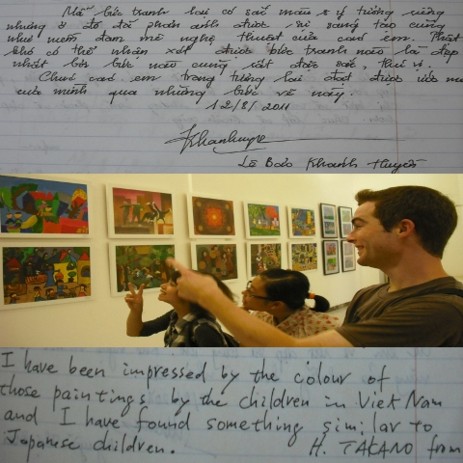 Mỗi bức tranh lại có sắc màu & ý tưởng riêng
nhưng ở đó đã phản ánh được sự sáng tạo cũng
như niềm đam mê nghệ thuật của các em. Thật
khó có thể nhận xét được bức tranh nào là đẹp
nhất bởi bức nào cũng rất đặc sắc, thú vị.
Chúc các em trong tương lai đạt được ước mơ
của mình qua những bức vẽ này.
12/8/2011
Khanhuyen
Lê Bảo Khanh Huyền
I have been impressed by the colour of
those paintings by the children in Viet Nam
and I have found something similar to
Japanese children. H. TAKANO from